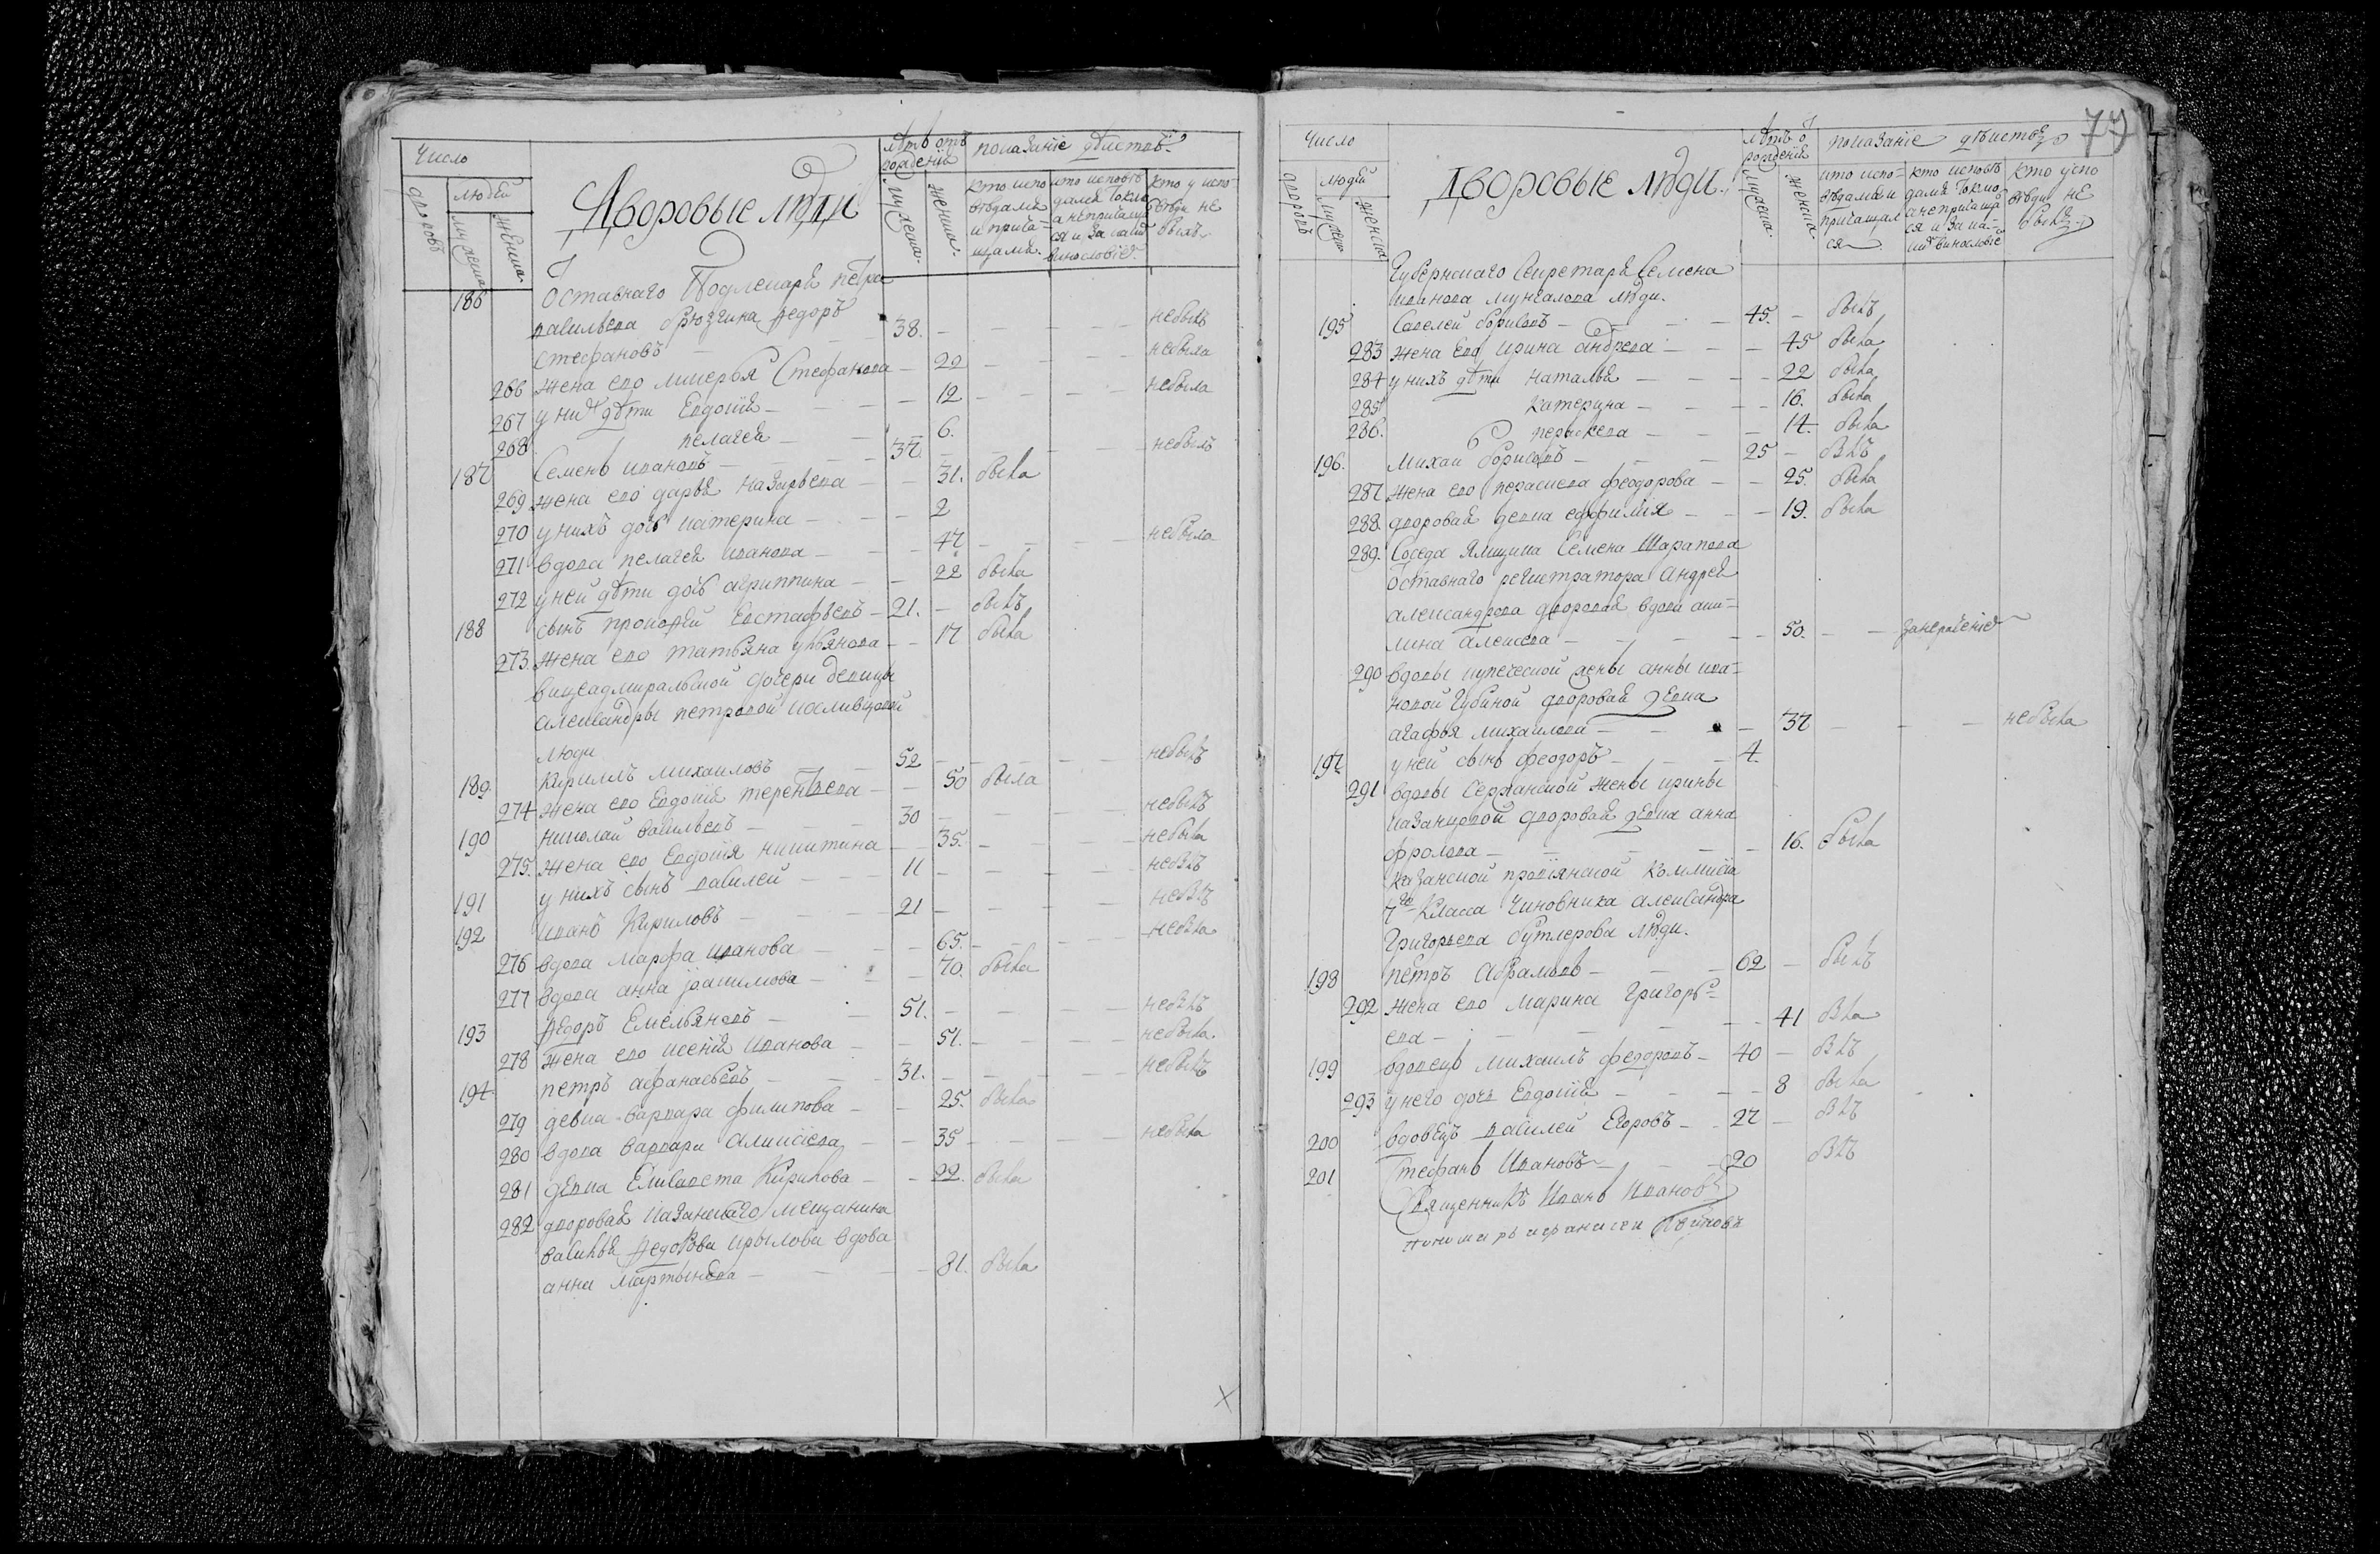 Число
лѣтъ отъ
показаніе дѣиствъ
дворовъ
людей
Дворовые люди
рожденія
мужеска
женска
мужеска
женска
кто испо
вѣдался
и прича=
щался
кто исповѣ
дался токмо
а непричаща
ся и за каким
винословіем
кто у испо=
вѣди не
былъ
186 Оставнаго Подлекаря Петра
васильева Брюзгина Ѳедоръ
стефановъ 38. небылъ
266 жена ево Ликерья Стефанова 29 небыла
267 у нихъ дѣти Евдокія 12 небыла
268 пелагея 6.
187 Семенъ ивановъ 37 небылъ
269 жена ево дарья Назарьева 31. была
270 у нихъ дочь катерина 2
271 вдова пелагея иванова 47 небыла
272 у ней дѣти дочь агриппина 22 была
188 сынъ прокопей Евстафьевъ 21. былъ
273 жена ево татьяна ульянова 17 была
вицеадмиральской дочери девицы
александры петровой
люди
189 Кириллъ михаиловъ 52 небылъ
274 жена ево Евдокія терентьева 50 была
190 николай васильевъ 30 небылъ
275. жена ево Евдокія никитина 35. небыла
191 у нихъ сынъ василей 11 небылъ
192 иванъ Кириловъ 21 небылъ
276 вдова марфа иванова 65. небыла
277 вдова анна іоакимова 70. была
193 Ѳедоръ Емельяновъ 51. небылъ
278 жена ево ксенія Иванова 51. небыла
194 петръ афанасьевъ 31. небылъ
279 девка варвара филипова 25. была
280 вдова варвара алексіева 35 небыла
281 девка Елисавета Кирилова 22. была
282 дворовая казанскаго мещанина
василья Ѳедорова крылова вдова
анна мартынова 81. была
77
Число
лѣтъ о
показаніе дѣиствъ
дворовъ
людей
Дворовые люди.
рожденія
мужеск
женска
мужеска.
женска.
кто испо=
вѣдался и
причащал
ся
кто исповѣ
дался токмо
а непричаща
ся и за ка=
ким винословіе
кто у испо
вѣди не
былъ
Губернскаго Секретаря Семена
иванова мунгалова люди.
195 Савелей борисовъ 45. былъ
283 жена ево ирина андреева 45 была
284 у нихъ дѣти наталья 22 была
285 катерина 16. была
286. параскева 14. была
196. михаи борисовъ 25 былъ
287. жена ево параскева феодорова 25. была
288. дворовая девка евфимія 19. была
289. Соседа Ямщика Семена Шарапова
Оставнаго регистратора Андрея
александрова дворовая вдова аки=
лина алексева 50. занерачение
290 вдовы купеческой жены анны ива=
новой Губиной дворовая девка
агафья михаилова 37 небыла
197. у ней сынъ феодоръ 4.
291 вдовы Сержанской жены ирины
казанцовой дворовая девка анна
фролова 16. была
Казанской провіянской Коммисіи
7го Класса Чиновника александра
Григорьева бутлерова люди.
198 петръ Абрамовъ 62 былъ
292 жена ево марина Григорь=
ева 41 была
199 вдовецъ михаилъ федоровъ 40 былъ
293 у него дочь Евдокія 8 была
200 вдовецъ василей Егоровъ 27 былъ
201 Стефанъ Ивановъ 20 былъ
Священникъ Иванъ Ивановъ